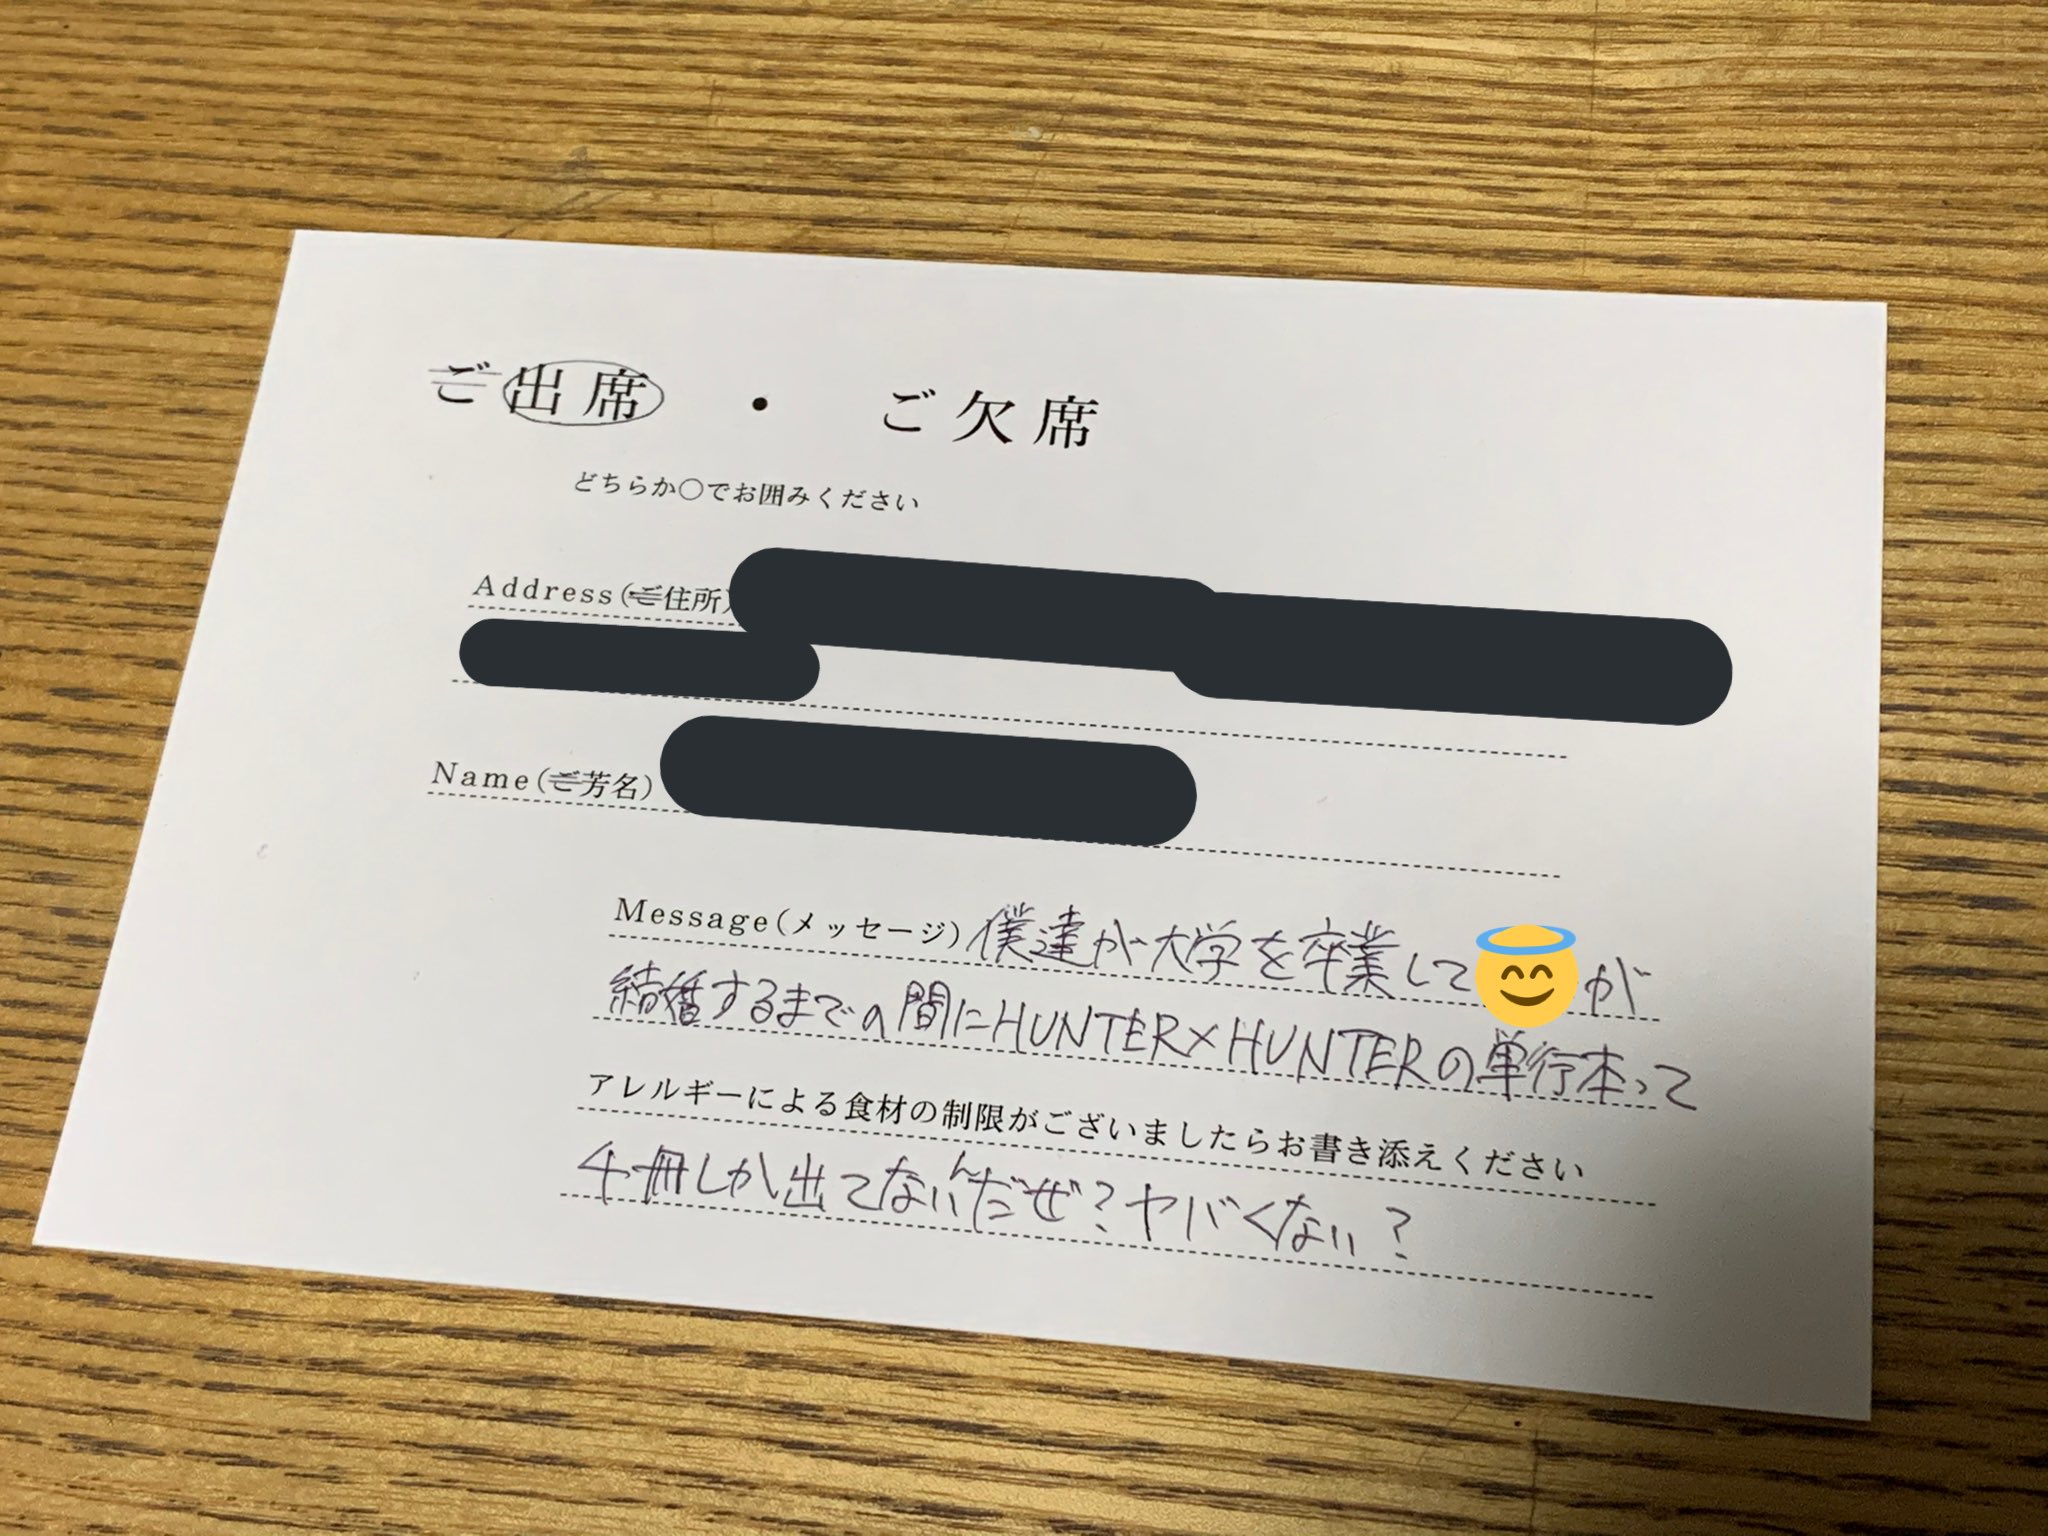 ご出席 ・ ご欠席
どちらか○でお囲みください
Address(ご住所)
Name(ご芳名)
Message(メッセージ)僕達が大学を卒業して😇が
結婚するまでの間にHUNTER×HUNTERの単行本って
アレルギーによる食材の制限がございましたらお書き添えください
4冊しか出てないんだぜ?ヤバくない?